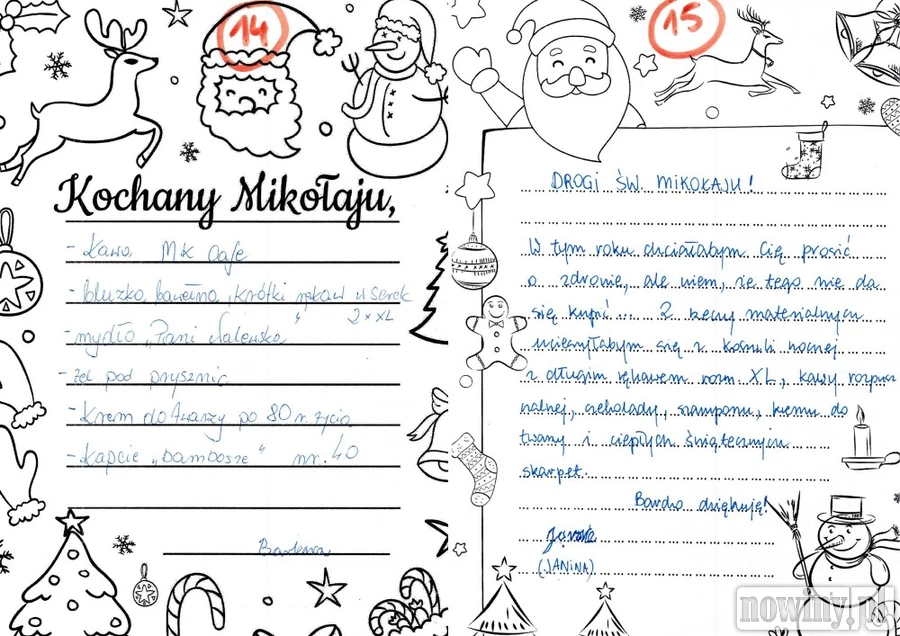 14
Kochany Mikołaju,
- Kawa MK Cafe
- bluzka bawełna, krótki rękaw w serek
2 x XL
- mydło „Pani Walewska”
- żel pod prysznic
- Krem do twarzy po 80 r. życia
- Kapcie „bambosze” nr. 40
15
DROGI ŚW. MIKOŁAJU!
W tym roku chciałabym Cię prosić
o zdrowie, ale wiem, że tego nie da
się kupić... Z rzeczy materialnych
ucieszyłabym się z koszuli nocnej
z długim rękawem rozm. XL, kawy rozpusz
czalnej, czekolady, szamponu, kremu do
twarzy i ciepłych świątecznych
skarpet.
Bardzo dziękuję!
(JANINA)
nowiny.pl